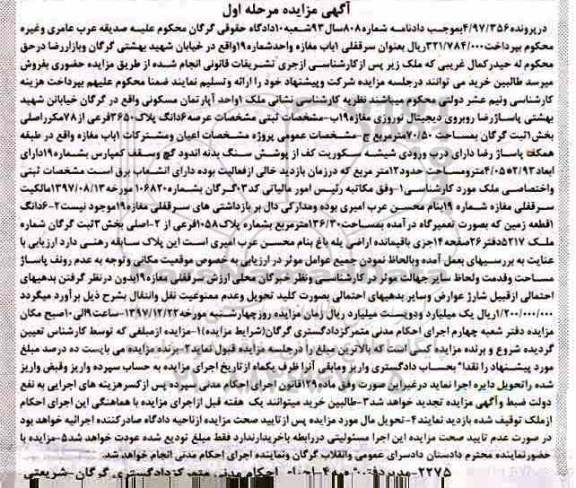 آگهی مزایده مرحله اول
درپرونده۴/۹۷/۳۵۶بموجب دادنامه شماره۸۰۸سال۹۳شعبه۱۰دادگاه حقوقی گرگان محکوم علیه صدیقه عرب عامری وغیره
محکوم بپرداخت۳۲۱/۷۸۴/۰۰۰ریال بعنوان سرقفلی ۱باب مغازه واحدشماره۱۹واقع در خیابان شهید بهشتی گرگان وپاژارضا درحق
محکوم له حیدرکمال غریبی که ملک زیر پس ازکارشناسی ازجری تشریفات قانونی انجام شده از طریق مزایده حضوری بفروش
میرسد طالبین خرید می توانند درجلسه مزایده شرکت وپیشنهاد خود را ارائه وتسلیم نمایند ضمنا محکوم علیهم بپرداخت هزینه
کارشناسی ونیم عشر دولتی محکوم میباشند نظریه کارشناسی نشانی ملک ۱واحد آپارتمان مسکونی واقع در گرگان خیابانن شهید
بهشتی پاساژرضا روبروی دیجیتال نوروزی مغازه۱۹ب-مشخصات ثبتی مشخصات عرصه۶دانگ پلاک۳۶۵۰فرعی از۷۸مکرراصلی
بخش۱ثبت گرگان بمساحت ۷۰/۵۰مترمربع ج-مشخصات عمومی پروژه مشخصات اعیان ومشترکات ۱باب مغازه واقع در طبقه
همکف پاساژ رضا دارای درب ورودی شیشه سکوریت کف از پوشش سنگ بدنه اندود گچ وسقف کمپارس بشماره۱۹دارای
ابعاد۲/۹۳*۴/۰۵مترومساحت حدود۱۲متر مربع که درزمان بازدید خالی ازفعالیت بوده دارای انشعاب برق است مشخصات ثبتی
واختصاصی ملک مورد کارشناسی۱-وفق مکاتبه رئیس امور مالیاتی کد۰۳گرگان بشماره۱۰۶۸۲۰ مورخه۱۳۹۷/۰۸/۱۳مالکیت
سرقفلی مغازه شماره ۱۹بنام محسن عرب امیری بوده ومدارکی دال بر بازداشتی های سرقفلی مغازه۱۹موجود نیست۲-۶دانگ
۱قطعه زمین که بصورت تعمیرگاه درآمده بمساحت۱۳۶/۳۰مترمربع بشماره پلاک۱۰۵۸فرعی از ۲-اصلی بخش۳ثبت گرگان شماره
ملک ۵۲۱۷دفتر۲۶صفحه۱۴جزی باقیمانده اراضی یله باغ بنام محسن عرب امیری است این پلاک سابقه رهنی دارد ارزیابی با
عنایت به بررسیهای بعمل آمده وبالحاظ نمودن جمیع عوامل موثر در ارزیابی به خصوص موقعیت مکانی وتوجه به عدم رونف پاساژ
مساحت وقدمت ولحاظ سایرجهالت موثر در کارشناسی ونظر خبرگان محلی ارزش سرقفلی مغازه۱۹بدون درنظر گرفتن بدهیهای
احتمالی ازقبیل شارژ عوارض وسایر بدهیهای احتمالی بصورت کلید تحویل وعدم ممنوعیت نقل وانتقال بشرح ذیل برآورد میگردد
۱/۲۰۰/۰۰۰/۰۰۰ریال یک میلیارد ودویست میلیارد ریال زمان مزایده روزچهارشنبه مورخه۱۳۹۷/۱۲/۲۲-ساعت۹الی۱۰صبح مکان
مزایده دفتر شعبه چهارم اجرای احکام مدنی متمرکزدادگستری گرگان(شرایط مزایده)۱-مزایده ازمبلغی که توسط کارشناس تعیین
گردیده شروع و برنده مزایده کسی است که بالاترین مبلغ را درجلسه مزایده قبول نماید۲-برنده مزایده می بایست ده درصد مبلغ
مورد پیشنهاد را نقدا" بحساب دادگستری واریز ومابقی آنرا ظرف یکماه ازتاریخ اجرای مزایده به حساب سپرده واریز وقبض واریز
شده راتحویل دایره اجرا نماید درغیراین صورت وفق ماده۱۲۹قانون اجرای احکام مدنی سپرده پس ازکسرهزینه های اجرایی به نفع
دولت ضبط وآگهی مزایده تجدید خواهد شد۳-طالبین خرید میتوانند یک هفته قبل ازاجرای مزایده با هماهنگی این اجرای احکام
ازملک توقیف شده بازدید نمایند۴-تحویل مال مورد مزایده پس ازتایید صحت مزایده ازناحیه دادگاه صادرکننده اجرائیه خواهد بود
در صورت عدم تایید صحت مزایده این اجرا مسئولیتی دررابطه باخریدارندارد فقط مبلغ تودیع شده عودت خواهد شد۵-مزایده با
حضورنماینده محترم دادستان دادسرای عمومی وانقلاب گرگان ونماینده اجرای احکام مدنی انجام خواهد شد.
۲۲۷۵-مدیردفترشعبه۴-اجرای احکام مدنی متمرکزدادگستری گرگان-شریعتی